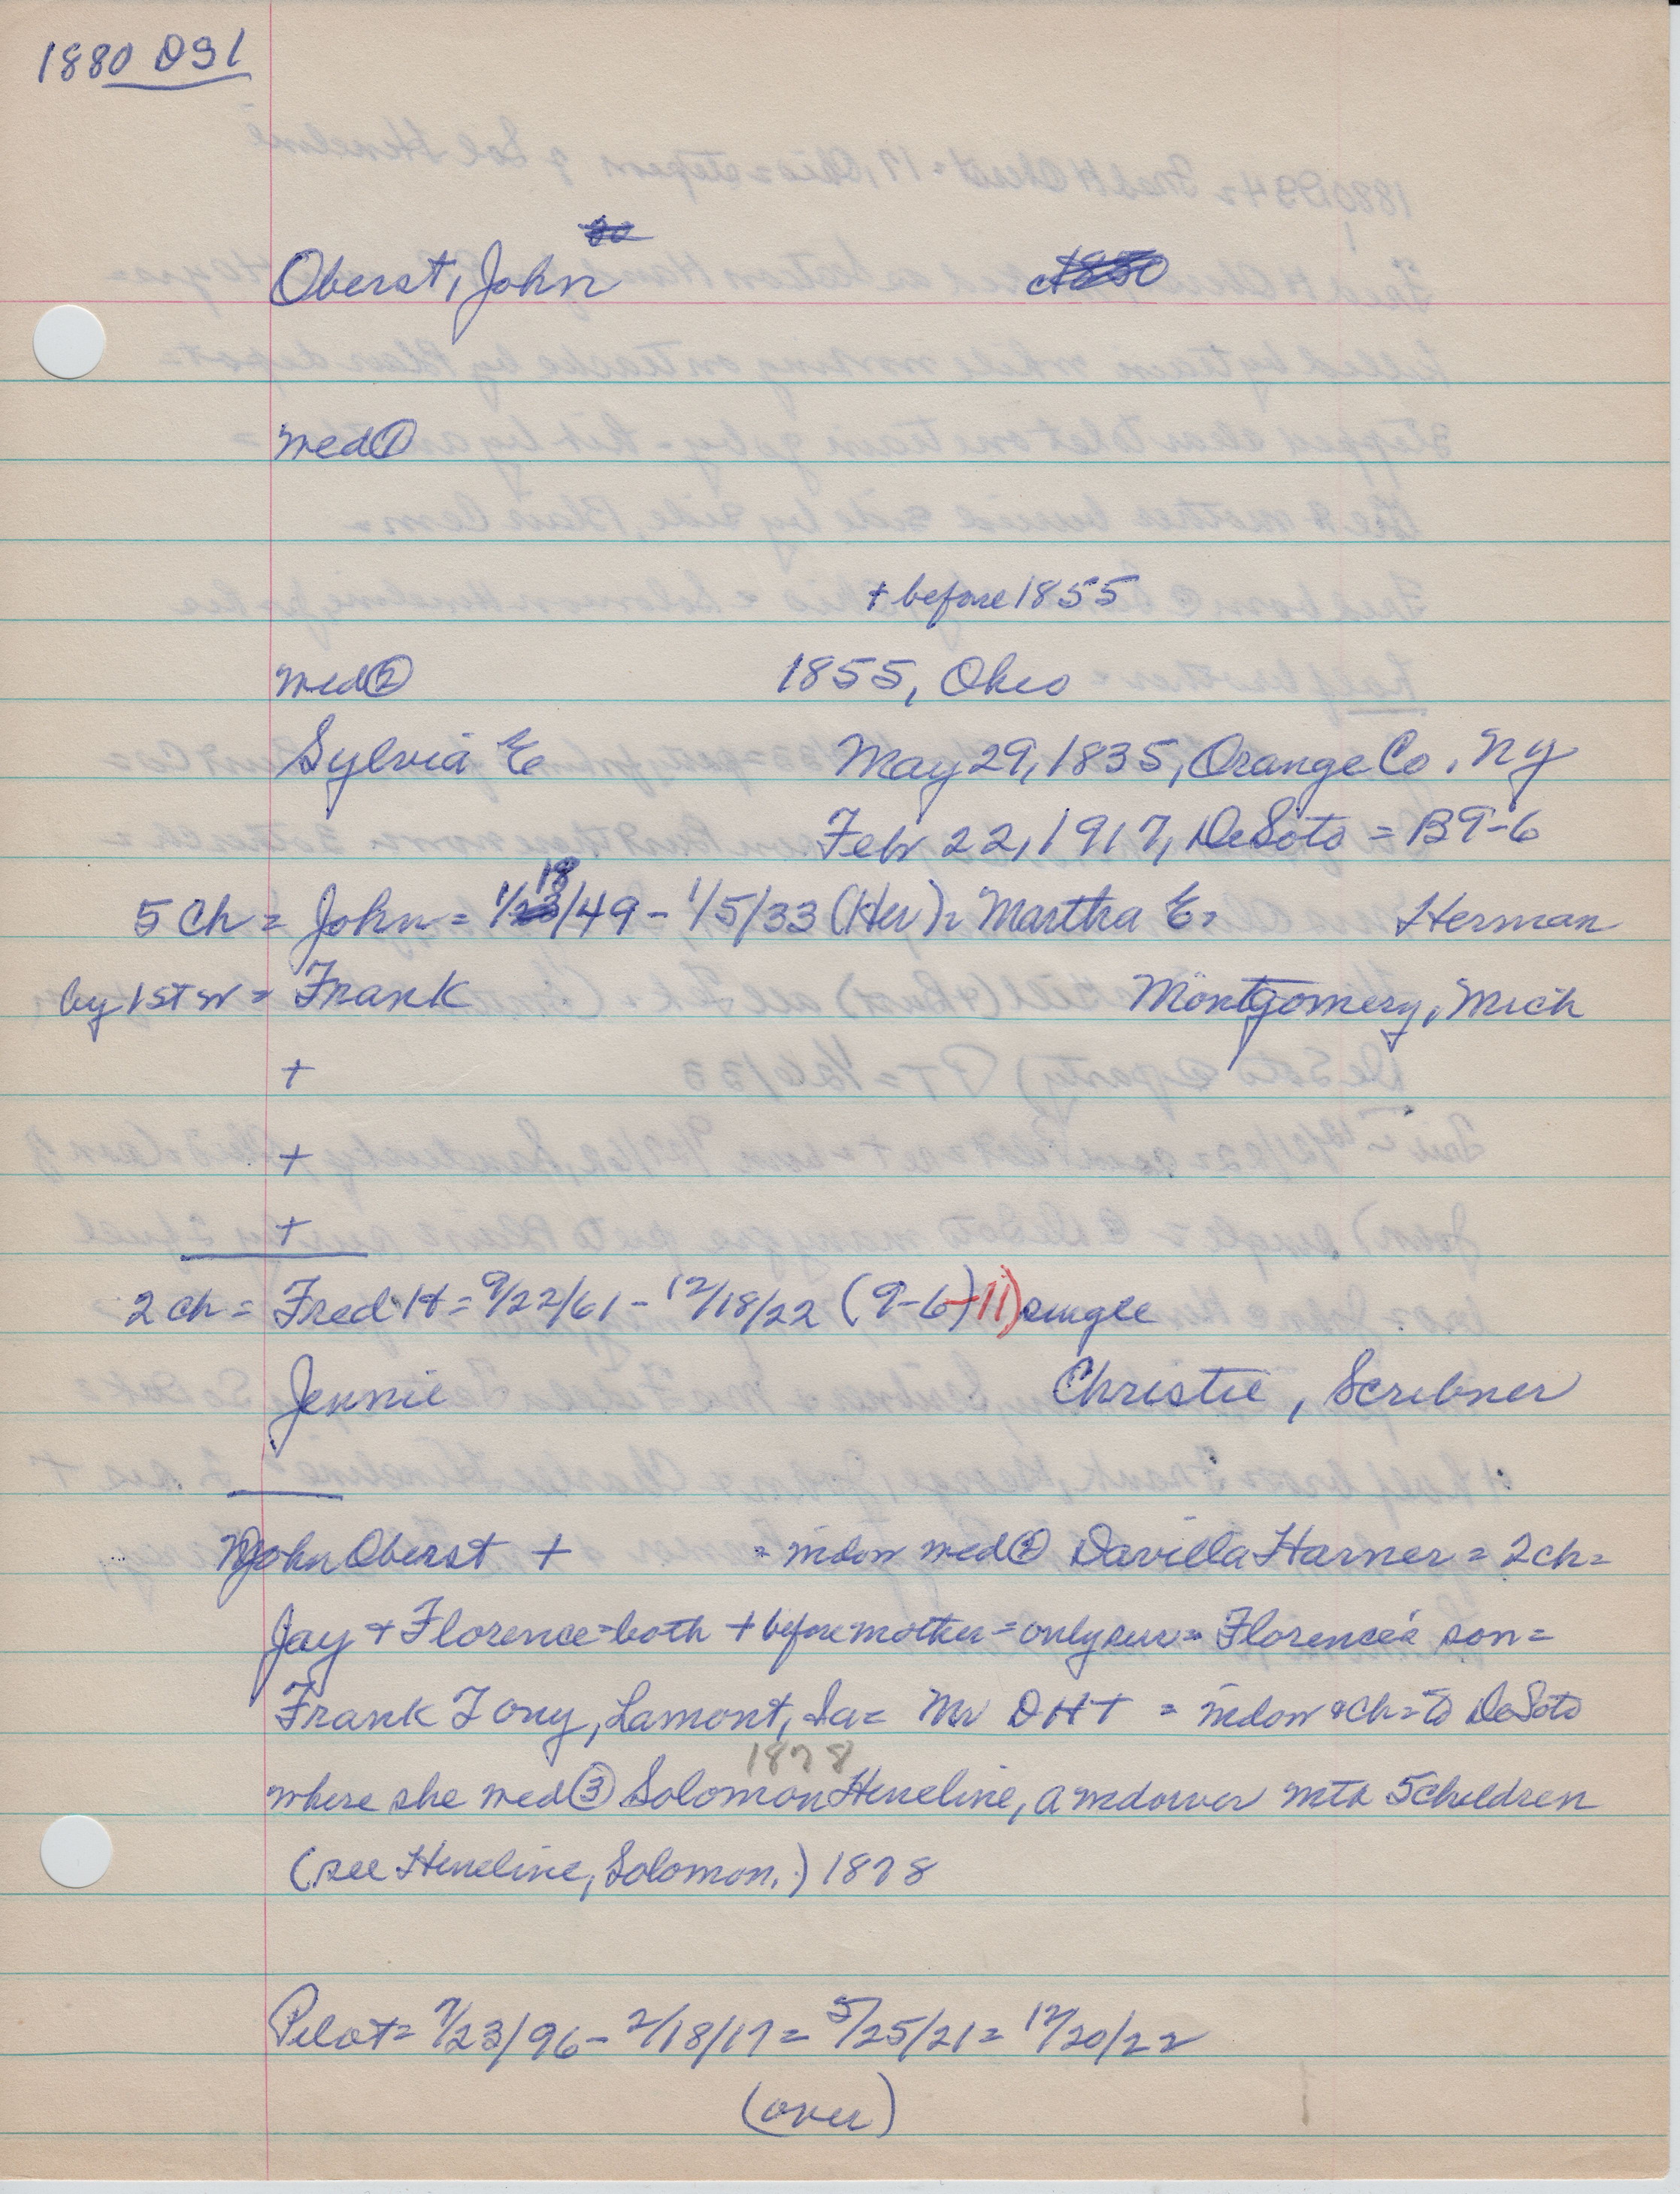 1880 DS1
Oberst, John
med ①
+ before 1855
med ② 1855, Ohio
Sylvia E May 29, 1835, Orange Co, NY
Febr 22, 1917, DeSoto = B9-6
5 Ch = John = 1/18/49 - 1/5/33 (Her) = Martha E = Herman
by 1st w = Frank Montgomery, Mich
+
+
+
2 ch = Fred H = 9/22/61 - 12/18/22 (9-6-11) single
Jennie Christie, Scribner
John Oberst + = widow med ② Davilla Harner = 2 ch =
Jay + Florence = both + before mother = only sur = Florence's son =
Frank Tony, Lamont, Ia = Mr DH + = widow & Ch = to DeSoto
1878
where she med ③ Solomon Heneline, a widower with 5 children
(see Heneline, Solomon.) 1878
Pilot = 7/23/96 - 2/18/17 = 5/25/21 = 12/20/22
(over)